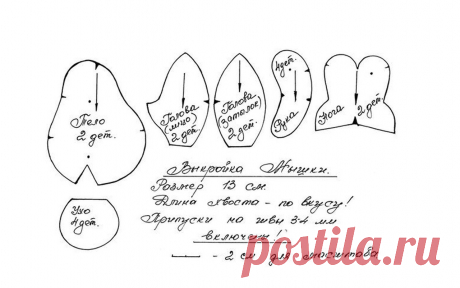 Тело
2 дет.
Голова
(лицо)
2 дет.
Голова
(затылок)
2 дет.
4 дет.
Рука
Нога
2 дет.
Ухо
4 дет.
Выкройка Мышки.
Размер 13 см.
Длина хвоста - по вкусу!
Припуски на швы 3-4 мм
включены!
- 2 см для масштаба
postila.ru